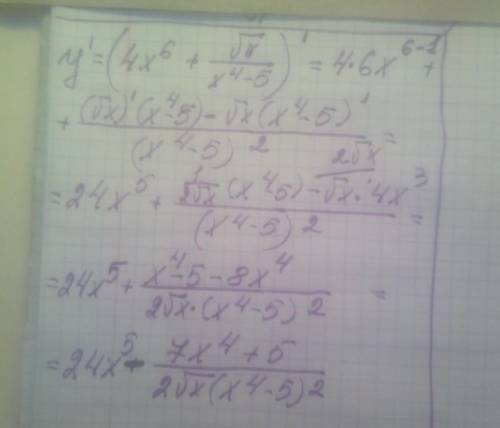 y' = (4x⁶ + √x / (x⁴-5))' = 4·6x⁶⁻¹ +
+ ((√x)'(x⁴-5) - √x(x⁴-5)') / (x⁴-5)² =
= 24x⁵ + (1/(2√x) (x⁴-5) - √x·4x³ ^(2√x)) / (x⁴-5)² =
= 24x⁵ + (x⁴-5-8x⁴) / (2√x·(x⁴-5)²) =
= 24x⁵ - (7x⁴+5) / (2√x(x⁴-5)²)